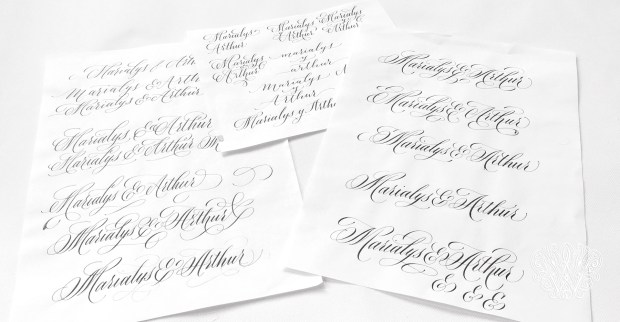 Marialys & Arthur
Marialys & Arthur
Marialys & Arthur
Marialys & Arthur
Marialys & Arthur
Marialys & Arthur
Marialys & Arthur
Marialys & Arthur
Marialys
Arthur
Marialys
& Arthur
Marialys
& Arthur
Marialys
& Arthur
marialys
y
arthur
marialys
y
Arthur
Marialys y Arthur
Marialys & Arthur
Marialys & Arthur
Marialys & Arthur
Marialys & Arthur
Marialys & Arthur
& & &